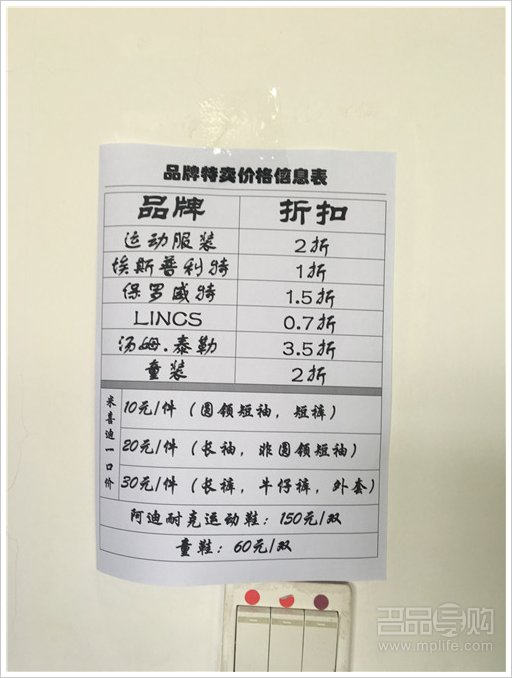 品牌特卖价格信息表
品牌 折扣
运动服装 2折
埃斯普利特 1折
保罗威特 1.5折
LINCS 0.7折
汤姆.泰勒 3.5折
童装 2折
来喜迪一口价
10元/件（圆领短袖，短裤）
20元/件（长袖，非圆领短袖）
30元/件（长裤，牛仔裤，外套）
阿迪耐克运动鞋：150元/双
童鞋：60元/双
名品导购
www.mplife.com